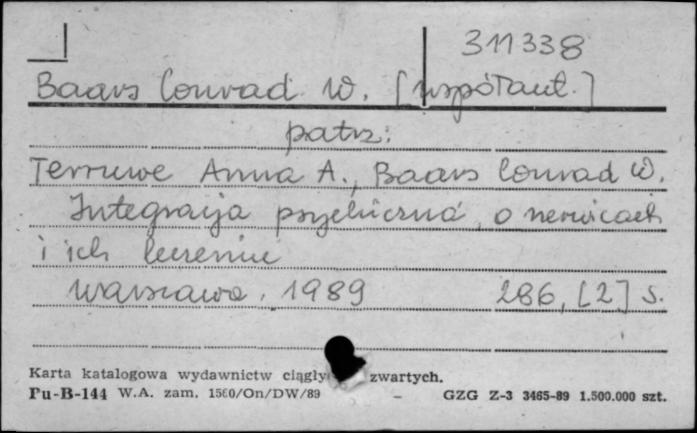 311338
Baars Conrad W. [współaut.]
patrz:
Terruwe Anna A., Baars Conrad W.
Integracja psychiczna, o nerwicach
i ich leczeniu
Warszawa, 1989 286, [2] s.
Karta katalogowa wydawnictw ciągły zwartych.
Pu-B-144 W.A. zam. 1560/On/DW/89 – GZG Z-3 3465-89 1.500.000 szt.